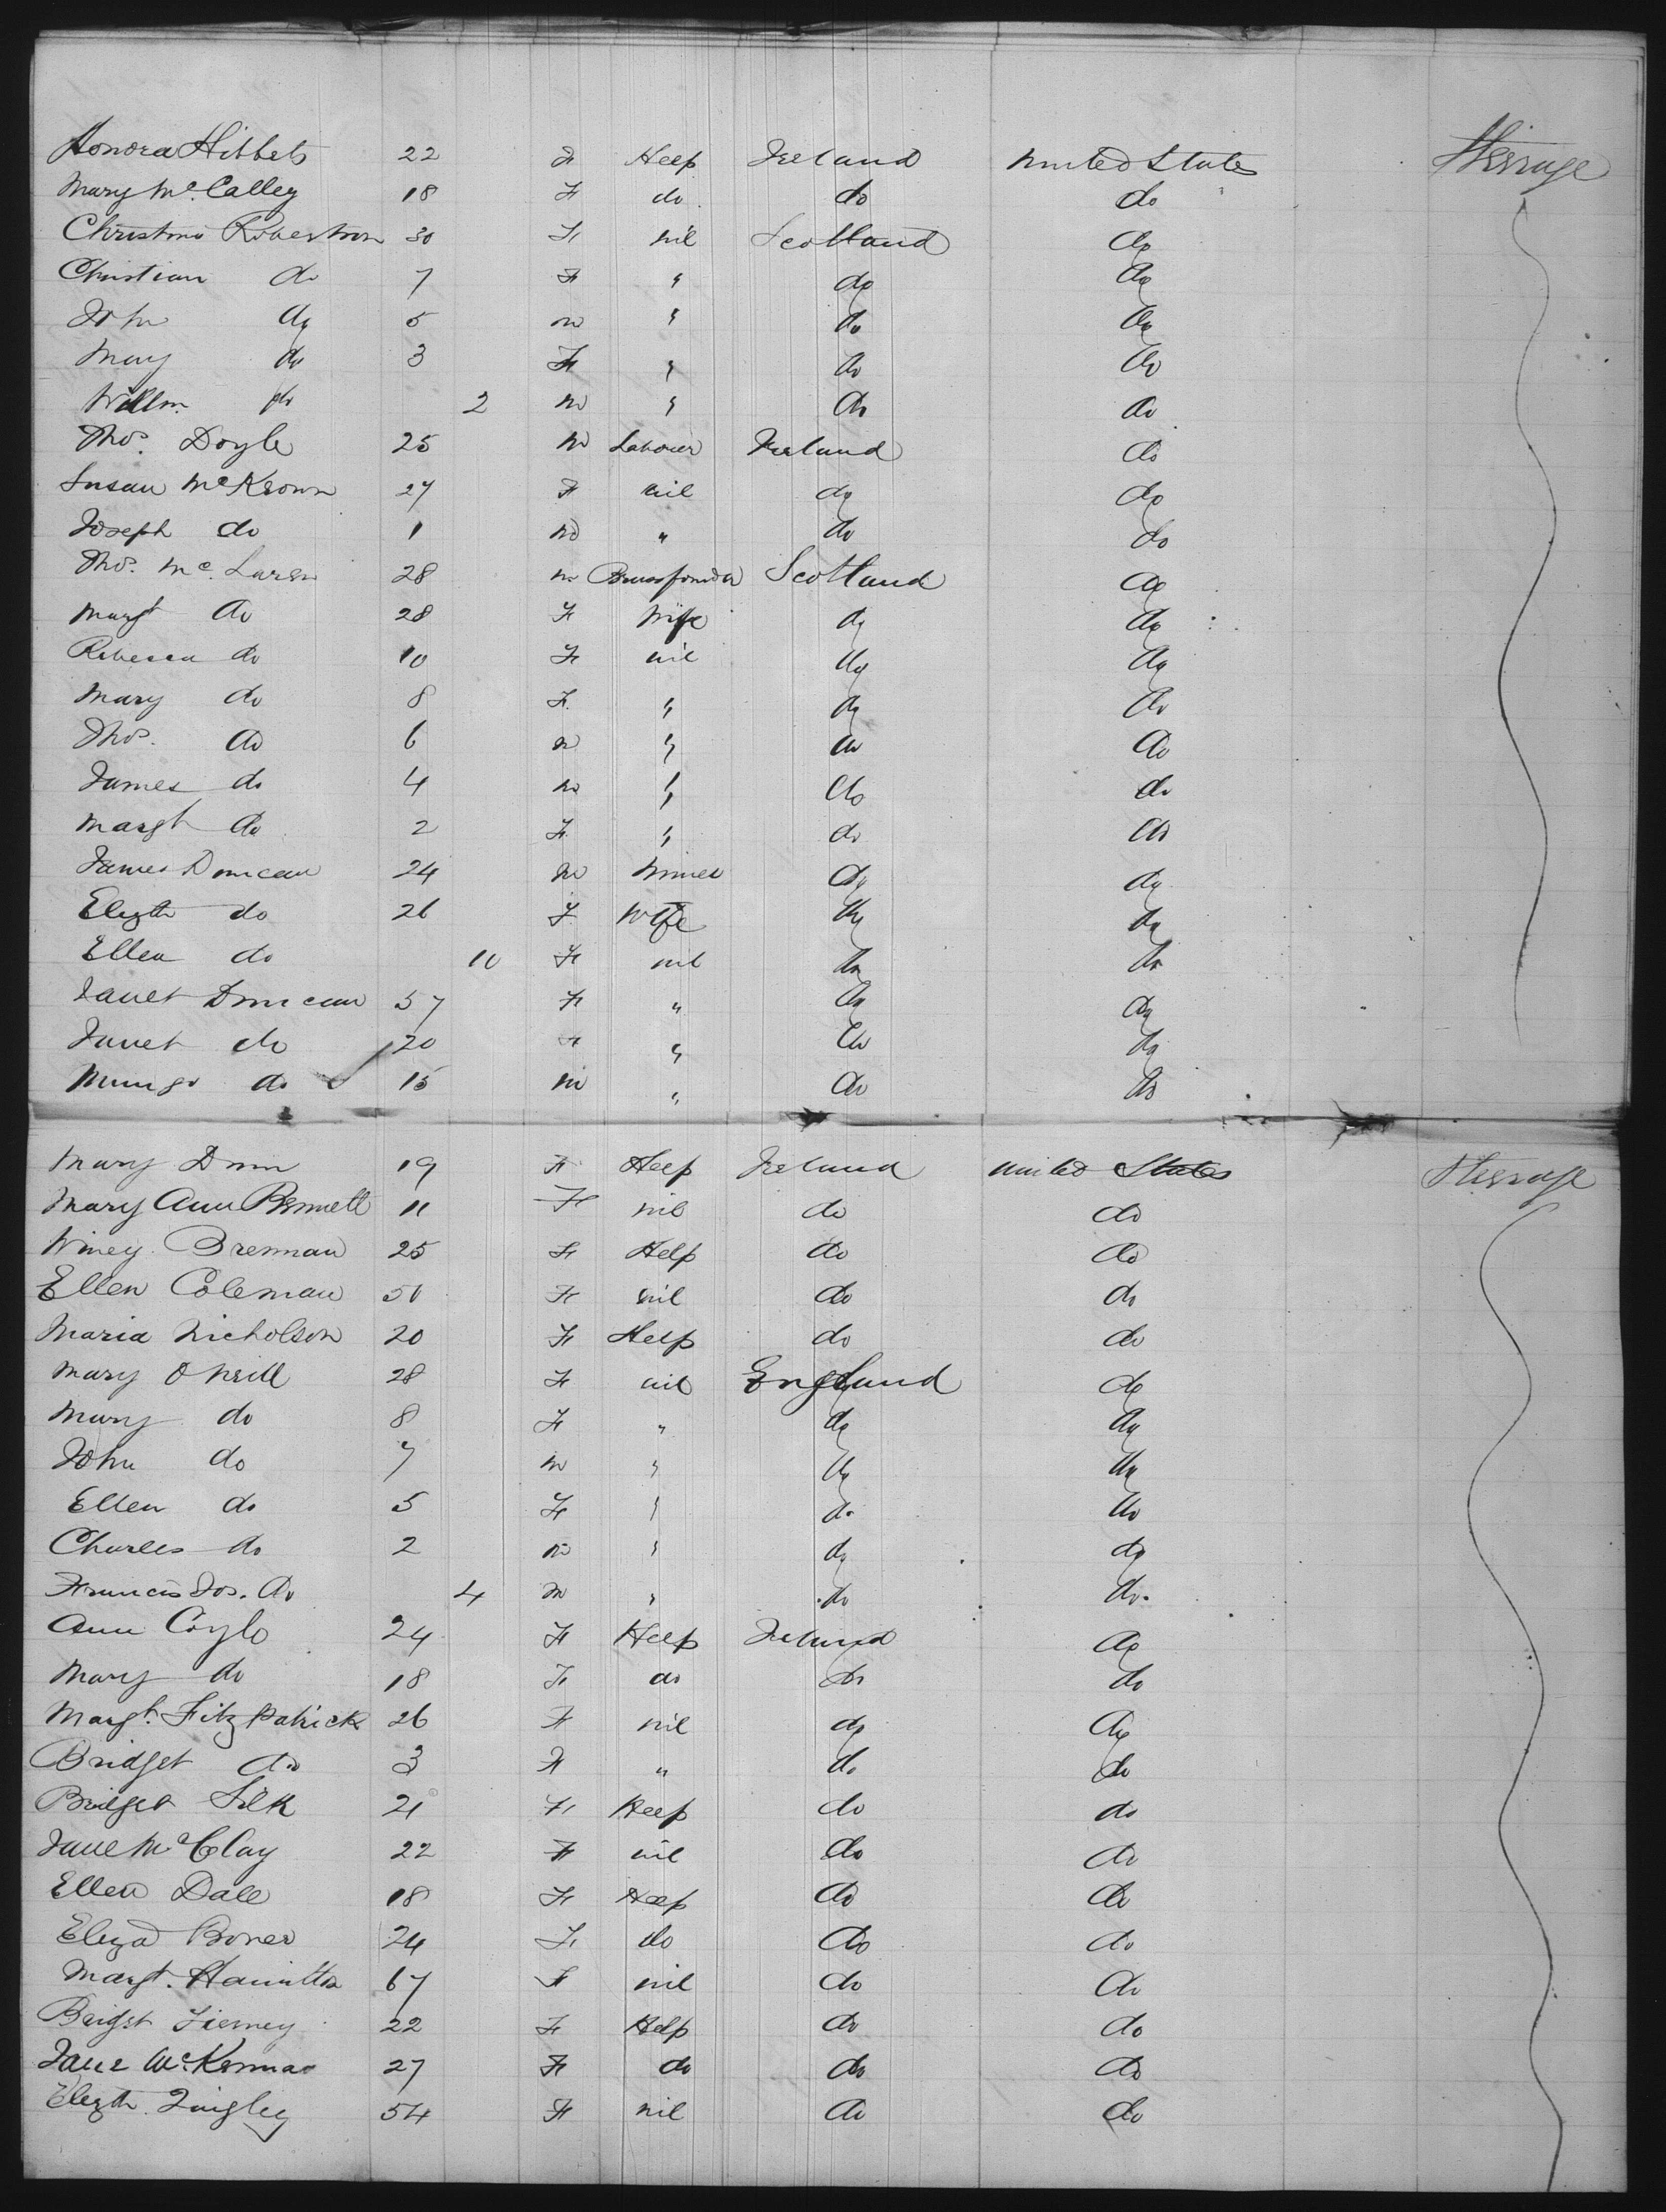 Honora Hibbets 22 F Help Ireland United States Steerage
Mary McCalley 18 F do do do
Christina Robertson 30 F nil Scotland do
Christian do 7 F " do do
John do 5 m " do do
Mary do 3 F " do do
Willm. do 2 m " do do
Thos. Doyle 25 m Labourer Ireland do
Susan McKeown 27 F nil do do
Joseph do 1 m " do do
Thos. McLaren 28 m Brassfounder Scotland do
Margt do 28 F Wife do do
Rebecca do 10 F nil do do
Mary do 8 F " do do
Thos. do 6 m " do do
James do 4 m " do do
Margt do 2 F " do do
James Duncan 24 m Miner do do
Elizth do 26 F Wife do do
Ellen do 10 F nil do do
Janet Duncan 57 F " do do
Janet do 20 F " do do
Mungo do 15 m " do do
Mary Dunn 19 F Help Ireland United States Steerage
Mary Ann Bennett 11 F nil do do
Winey Brennan 25 F Help do do
Ellen Coleman 50 F nil do do
Maria Nicholson 20 F Help do do
Mary O Neill 28 F nil England do
Mary do 8 F " do do
John do 7 m " do do
Ellen do 5 F " do do
Charles do 2 m " do do
Francis Jos. do 4 m " do do
Ann Coyle 24 F Help Ireland do
Mary do 18 F do do do
Margt. Fitzpatrick 26 F nil do do
Bridget do 3 F " do do
Bridget Silk 21 F Help do do
Jane McClay 22 F nil do do
Ellen Dale 18 F Help do do
Eliza Boner 24 F do do do
Margt. Hamilton 67 F nil do do
Bridgt Tierney 22 F Help do do
Jane McKenna 27 F do do do
Elizth Quigley 54 F nil do do